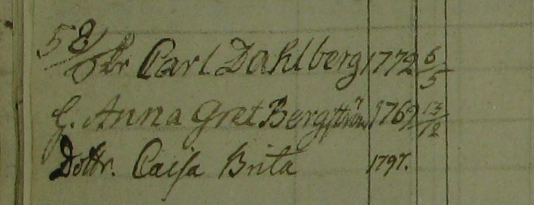 58/ Carl Dahlberg 1772 6/5
h. Anna Gret Bergström 1769 13/12
Dottr. Caisa Brita 1797.